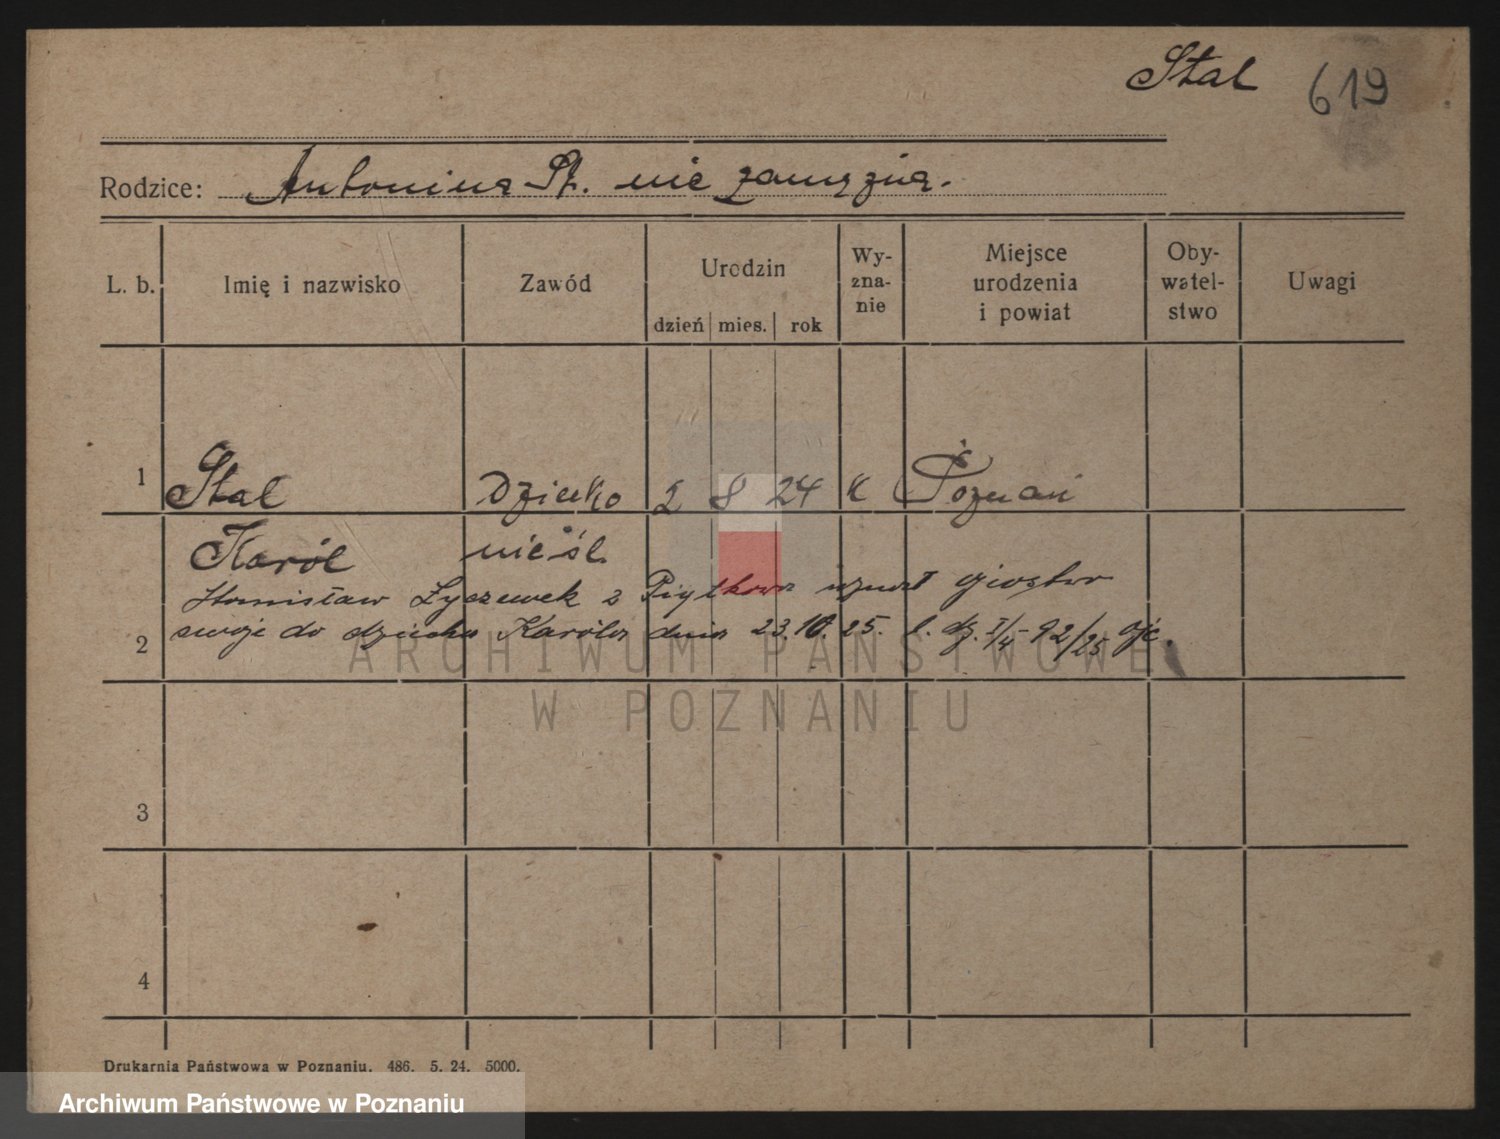 Stal 619
Rodzice: Antonina St. nie zamężna.
L. b. Imię i nazwisko Zawód Urodzin dzień mies. rok Wy-zna-nie Miejsce urodzenia i powiat Oby-watel-stwo Uwagi
1 Stal Dziecko 2 8 24 K Poznań
Karól nieśl.
Stanisław Łyczewek z Piątkowa uznał ojcostwo
2 swoje do dziecka Karóla dnia 23.10.25. l. dz. I/4-92/25 Ojc.
ARCHIWUM PAŃSTWOWE
W POZNANIU
3
4
Drukarnia Państwowa w Poznaniu. 486. 5. 24. 5000.
Archiwum Państwowe w Poznaniu